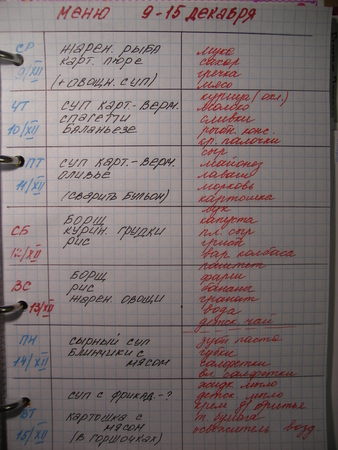 МЕНЮ 9-15 ДЕКАБРЯ
СР
9/XII
ЖАРЕН. РЫБА
КАРТ. ПЮРЕ
(+ОВОЩН. СУП)
ЧТ
10/XII
СУП КАРТ.-ВЕРМ.
СПАГЕТТИ
БАЛАНЬЕЗЕ
ПТ
11/XII
СУП КАРТ.-ВЕРМ.
ОЛИВЬЕ
(СВАРИТЬ БУЛЬОН)
СБ
12/XII
БОРЩ
КУРИН. ГРУДКИ
РИС
ВС
13/XII
БОРЩ
РИС
ЖАРЕН. ОВОЩИ
ПН
14/XII
СЫРНЫЙ СУП
БЛИНЧИКИ С
МЯСОМ
ВТ
15/XII
СУП С ФРИКАД.-?
КАРТОШКА С
МЯСОМ
(В ГОРШОЧКАХ)
мука
сахар
гречка
мясо
курица (охл.)
молоко
сливки
рыбн. конс.
кр. палочки
сыр
майонез
лаваш
морковь
картошка
лук
капуста
пл. сыр
грибы
вар. колбаса
паштет
фарш
бананы
гранат
вода
детск. чай
зубн. паста
губки
салфетки
вл. салфетки
жидк. мыло
детск. мыло
крем д/бритья
т. бумага
освежитель возд.